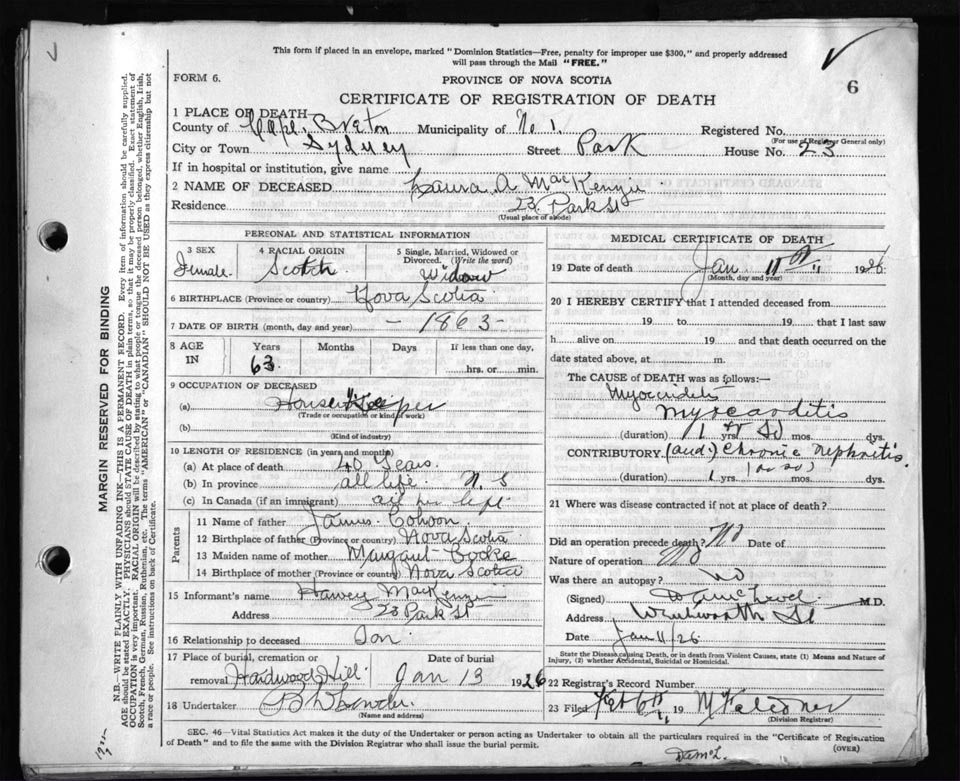 This form if placed in an envelope, marked "Dominion Statistics—Free, penalty for improper use $300," and properly addressed
will pass through the Mail "FREE."
FORM 6.
PROVINCE OF NOVA SCOTIA
6
CERTIFICATE OF REGISTRATION OF DEATH
1 PLACE OF DEATH
County of Cape Breton Municipality of No 1. Registered No.
(For use of Registrar General only)
City or Town Sydney Street Park House No. 23
If in hospital or institution, give name
2 NAME OF DECEASED Laura A MacKenzie
Residence 23 Park St
(Usual place of abode)
PERSONAL AND STATISTICAL INFORMATION
3 SEX 4 RACIAL ORIGIN 5 Single, Married, Widowed or Divorced. (Write the word)
Female Scotch Widow
6 BIRTHPLACE (Province or country) Nova Scotia
7 DATE OF BIRTH (month, day and year) - 1863 -
8 AGE IN Years Months Days If less than one day,
63 hrs. or min.
9 OCCUPATION OF DECEASED
(a) House Keeper
(Trade or occupation or kind of work)
(b)
(Kind of industry)
10 LENGTH OF RESIDENCE (in years and months)
(a) At place of death 40 Years.
(b) In province all life. N. S
(c) In Canada (if an immigrant) all her life
Parents
11 Name of father James Cohoon
12 Birthplace of father (Province or country) Nova Scotia
13 Maiden name of mother Margaret
14 Birthplace of mother (Province or country) Nova Scotia
15 Informant's name Harvey MacKenzie
Address 23 Park St
16 Relationship to deceased Son
17 Place of burial, cremation or removal Hardwood Hill Date of burial Jan 13 1926
18 Undertaker
(Name and address)
MEDICAL CERTIFICATE OF DEATH
19 Date of death Jan 11th 1926
(Month, day and year)
20 I HEREBY CERTIFY that I attended deceased from
19 to 19 that I last saw
h alive on 19 and that death occurred on the
date stated above, at m.
The CAUSE of DEATH was as follows:—
Myocarditis
Myocarditis
(duration) 1 yrs mos. dys.
CONTRIBUTORY (and) Chronic Nephritis
(duration) 1 (or so) mos. dys.
21 Where was disease contracted if not at place of death?
Did an operation precede death? No Date of
Nature of operation No
Was there an autopsy? No
(Signed) M.D.
Address Wentworth St
Date Jan 11/26
State the Disease causing Death, or in death from Violent Causes, state (1) Means and Nature of
Injury, (2) whether Accidental, Suicidal or Homicidal.
22 Registrar's Record Number
23 Filed Feb 6th 19
(Division Registrar)
SEC. 46—Vital Statistics Act makes it the duty of the Undertaker or person acting as Undertaker to obtain all the particulars required in the "Certificate of Registration
of Death" and to file the same with the Division Registrar who shall issue the burial permit.
(OVER)
MARGIN RESERVED FOR BINDING
N.B.—WRITE PLAINLY WITH UNFADING INK—THIS IS A PERMANENT RECORD. Every item of information should be carefully supplied.
AGE should be stated EXACTLY. PHYSICIANS should STATE CAUSE OF DEATH in plain terms, so that it may be properly classified. Exact statement of
OCCUPATION is very important. RACIAL ORIGIN will be described by stating to what people or tongue the deceased person belonged, whether English, Irish,
Scotch, French, German, Russian, Ruthenian, etc. The terms "AMERICAN" or "CANADIAN" SHOULD NOT BE USED as they express citizenship but not
a race or people. See instructions on back of Certificate.